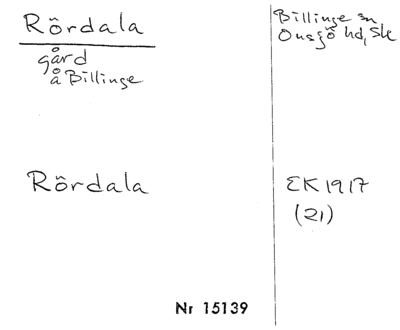 Rördala
gård
å Billinge
Billinge sn
Onsjö hd, Sk
Rördala
EK 1917
(21)
Nr 15139